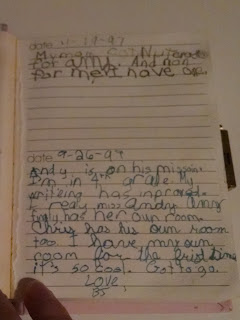 date 4-19-97
for me I have one.
date 9-26-99
Andy is on his mission.
I'm in 4th grade. My
writeing has inproved.
I realy miss Andy.
has her own room.
Chris has his own room
too. I have my own
room for the first time
it's so cool. Gotta go.
LOVE,